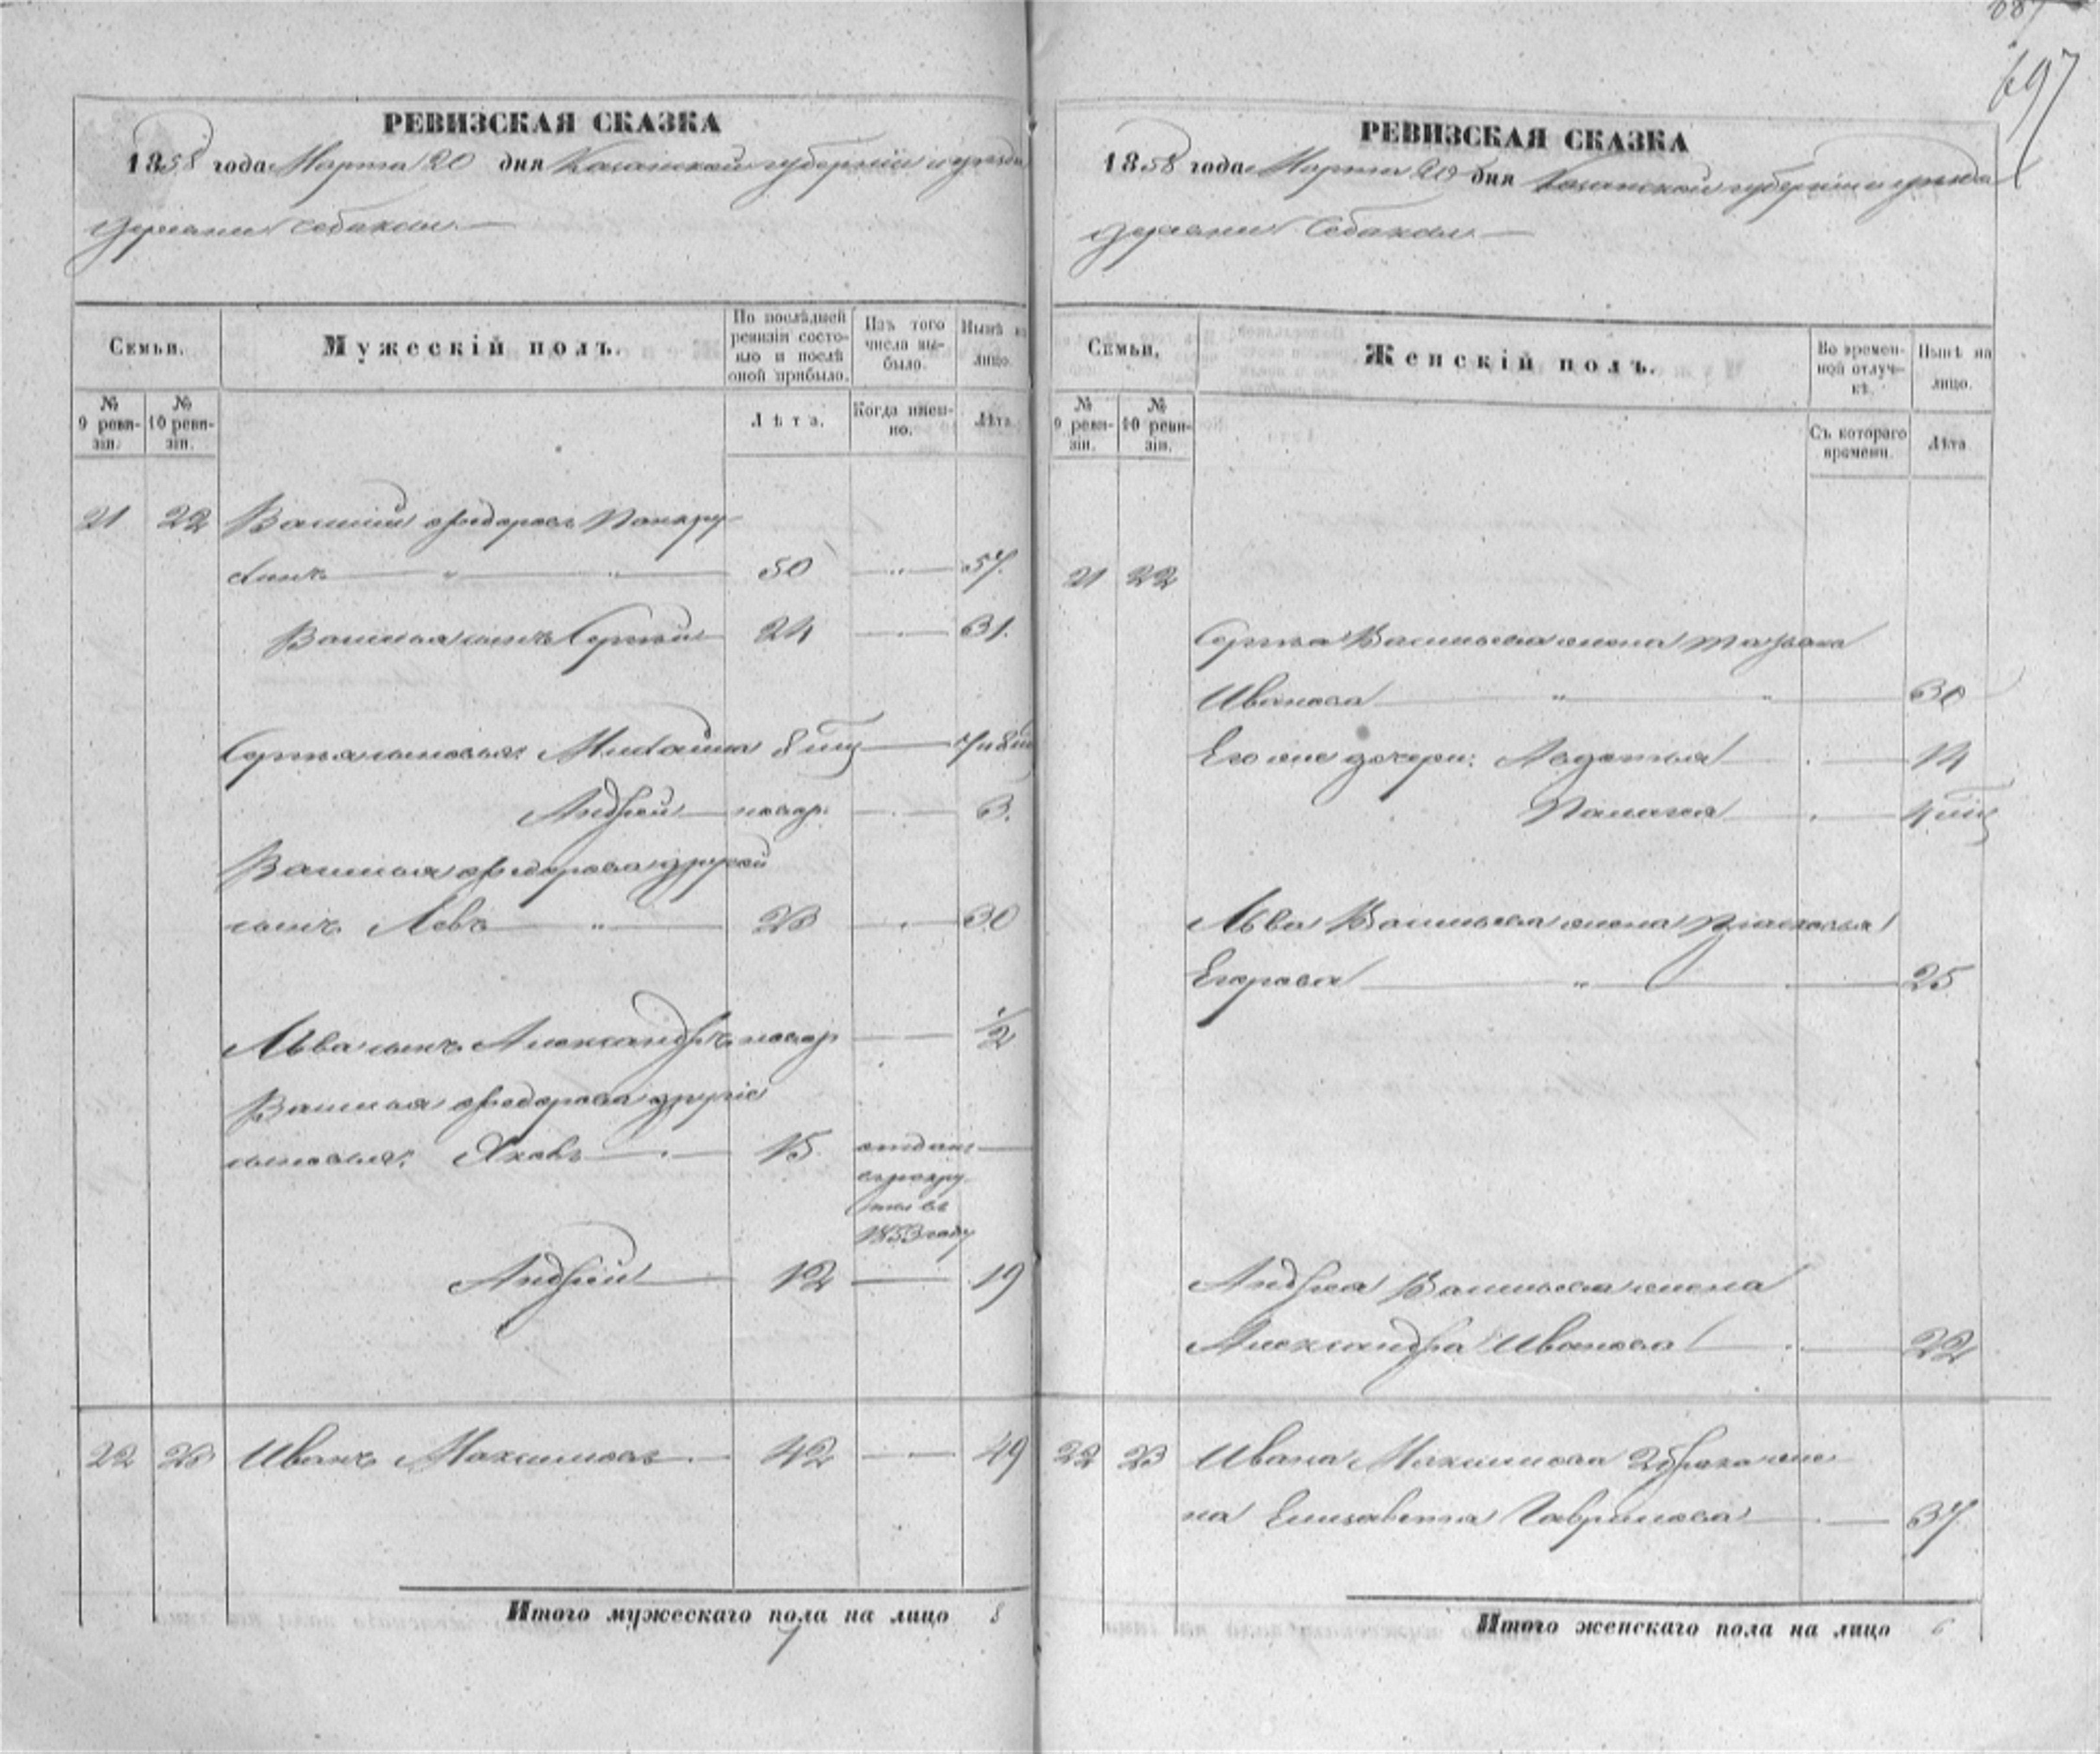 697
РЕВИЗСКАЯ СКАЗКА
1858 года Марта 20 дня Казанской губерніи и уезда
деревни Собакаи
Семьи.
Мужескій полъ.
По послѣдней ревизіи состояло и послѣ оной прибыло.
Изъ того числа выбыло.
Нынѣ на лицо.
№ 9 ревизіи.
№ 10 ревизіи.
Лѣта.
Когда именно.
Лѣта
21 22 Василій Федоровъ
50 57
Василья сынъ Сергѣй 24 31.
Сергѣя сыновья: Михайла 8 мц
Андрей новор. 3.
Василья Федорова другой
сынъ Левъ 23 30
Льва сынъ Александръ новор 1/2
Василья Федорова другіе
сыновья: Яковъ 15 отданъ
въ рекру
ты въ
1853 году
Андрей 12 19
22 23 Иванъ Максимовъ 42 49
Итого мужескаго пола на лицо 8
РЕВИЗСКАЯ СКАЗКА
1858 года Марта 20 дня Казанской губерніи и уезда
деревни Собакаи
Семьи.
Женскій полъ.
Во временной отлучкѣ.
Нынѣ на лицо.
№ 9 ревизіи.
№ 10 ревизіи.
Съ котораго времени.
Лѣта
21 22
Сергѣя Васильева жена Татьяна
Иванова 30
Его же дочери: Авдотья 14
Палагея 4 мц
Льва Васильева жена Прасковья
Егорова 25
Андрея Васильева жена
Александра Иванова 22
22 23 Ивана Максимова 2 брака же
на Елизавета Гаврилова 37
Итого женскаго пола на лицо 6